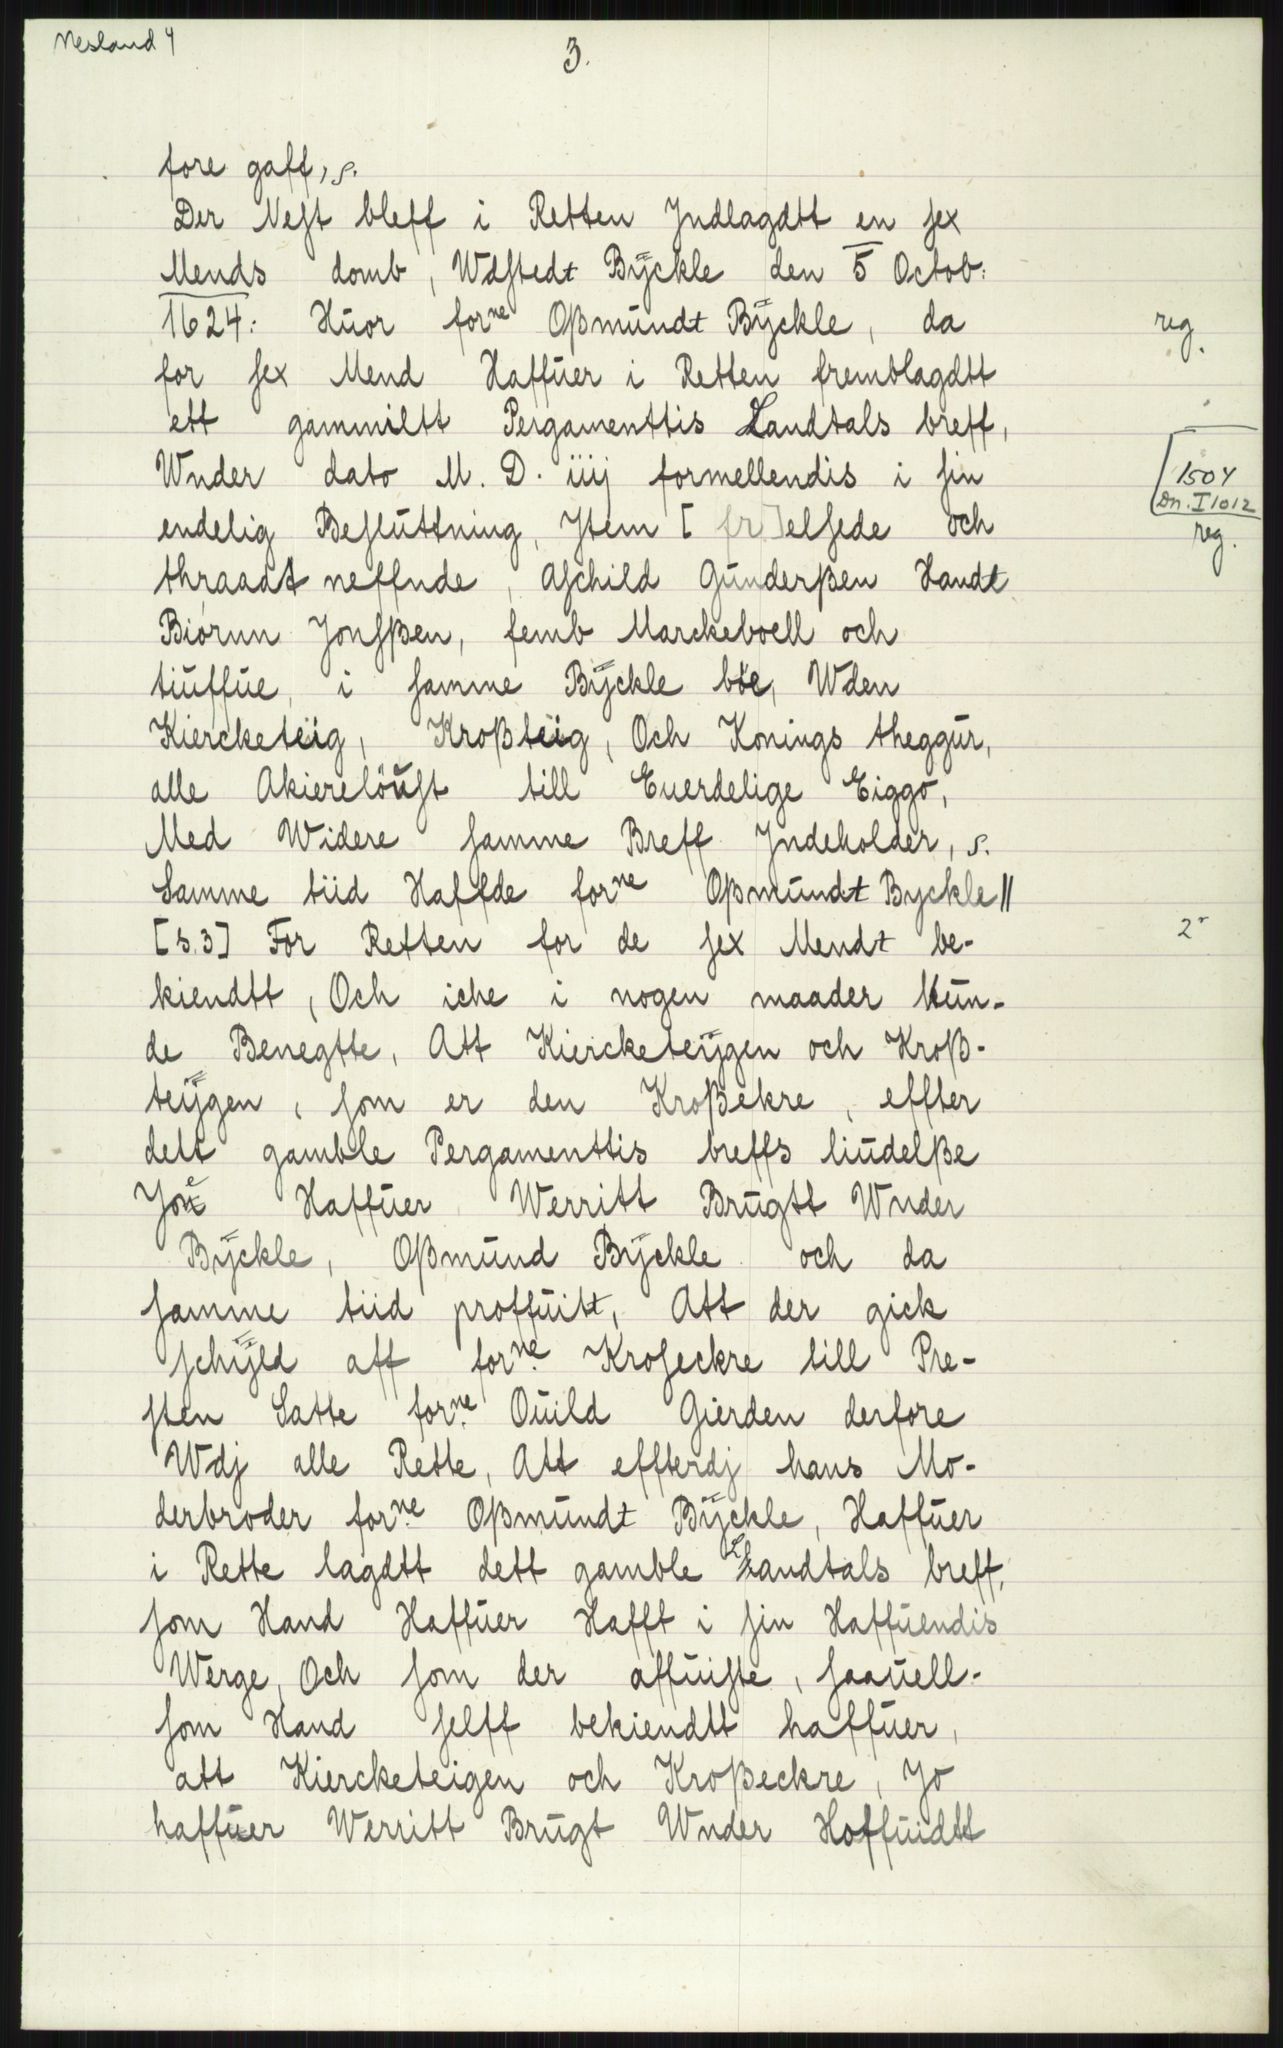 Nesland 4
3.
fore gaff, s.
Der Nest bleff i Retten Jndlagdtt en sex
Mends domb, Wdstedt Bÿckle den 5 Octob:
1624: Huor forne Oßmundt Bÿckle, da
reg.
for sex Mend Haffuer i Retten fremblagdtt
ett gammiltt Pergamenttis Landtals breff,
Wnder dato M. D. iiij formellendis i sin
1504
Dn. I 1012
endelig Besluttning, Jtem [fr]elsede och
reg.
thraadt neffnde, Aschild Gunderßen Handt
Biörnn Jonsßen, femb Marckeboell och
tiuffue, i samme Bÿckle böe, Wden
Kiercketeiig, Kroßteiig, Och Konings theggur,
alle Akierelöust till Euerdelige Eiggo,
Med Widere samme Breff Jndeholder, s.
Samme tiid Haffde forne Oßmundt Byckle ||
[s.3] For Retten for de sex Mendt be-
2r
kiendtt, Och iche i nogen maader kun-
de Benegtte, Att Kiercketeÿgen och Kroß-
teÿgen, som er den Kroßekre, effter
dett gamble Pergamenttis breffs liudelße
Joe Haffuer Werritt Brugtt Wnder
Bÿckle, Oßmund Bÿckle och da
samme tiid proffuitt, Att der gick
schÿld aff forne Kroseckre till Pre-
sten Satte forne Ouild Gierden derfore
Wdj alle Rette, Att effterdj hans Mo-
derbroder forne Oßmundt Bÿckle, Haffuer
i Rette lagdtt dett gamble Landtals breff,
som Hand Haffuer Hafft i sin Haffuendis
Werge, Och som der affuiste, saauell-
som Hand selff bekiendtt haffuer,
att Kiercketeigen och Kroßeckre, Jo
haffuer Werritt Brugt Wnder Hoffuidtt